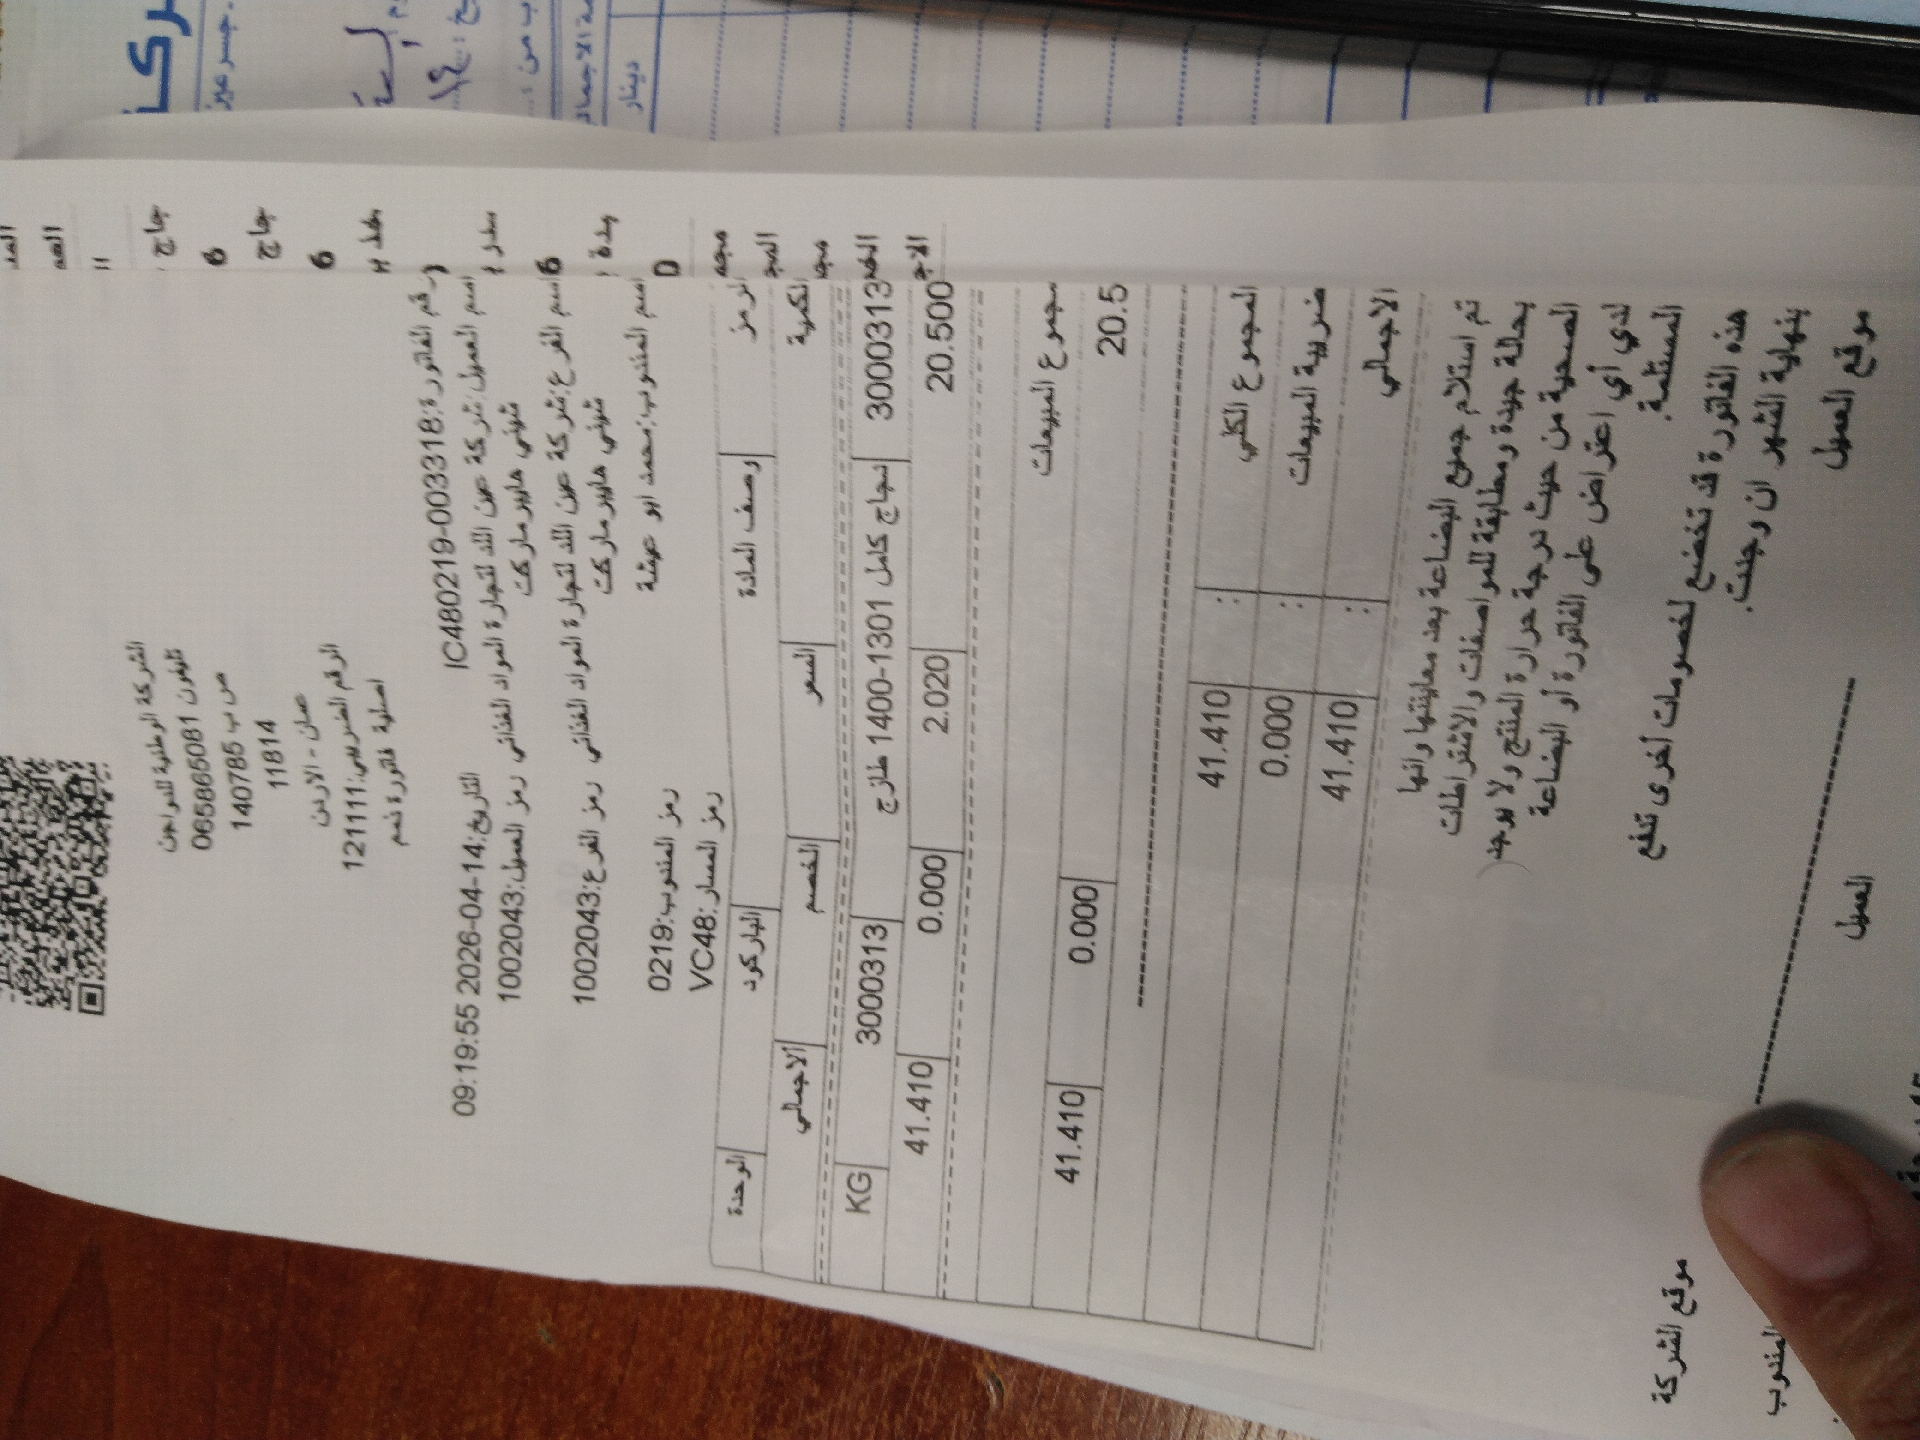 الشركة الوطنية للدواجن
تليفون 065865081
ص ب 140785
11814
عمان - الاردن
الرقم الضريبي:1211111
اصلية فاتورة ذمم
رقم الفاتورة:IC480219-003318 التاريخ:2026-04-14 09:19:55
اسم العميل:شركة عين اللد لتجارة المواد الغذائي رمز العميل:1002043
هايبر ماركت
اسم الفرع:شركة عين اللد لتجارة المواد الغذائي رمز الفرع:1002043
هايبر ماركت
اسم المندوب:محمد ابو عيشة رمز المندوب:02219
رمز المسار:VC48
الرمز وصف المادة الباركود الوحدة
الكمية السعر الخصم الاجمالي
3000313 دجاج كامل 1301-1400 طازج 3000313 KG
20.500 2.020 0.000 41.410
مجموع المبيعات 0.000 41.410
20.5
المجموع الكلي : 41.410
ضريبة المبيعات : 0.000
الاجمالي : 41.410
تم استلام جميع البضاعة بعد معاينتها وانها
بحالة جيدة ومطابقة للمواصفات والاشتراطات
الصحية من حيث درجة حرارة المنتج ولا يوجد
لدي أي اعتراض على الفاتورة أو البضاعة
المستلمة.
هذه الفاتورة قد تخضع لخصومات أخرى تدفع
بنهاية الشهر ان وجدت.
موقع العميل العميل
موقع الشركة المندوب